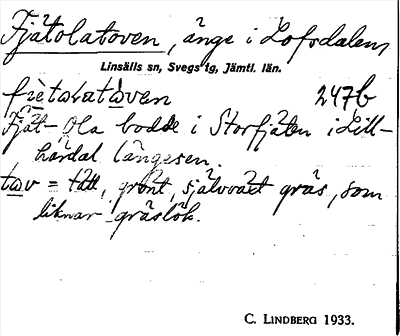 Fjätolatoven, änge i Lofsdalens
Linsälls sn, Svegs tg, Jämtl. län.
fiètωlatὼven 247b
Fjät-Ola bodde i Storfjäten i Lill-
härdal längesen.
tωv = tätt, grönt, självväxt gräs, som
liknar gräslök.
C. LINDBERG 1933.